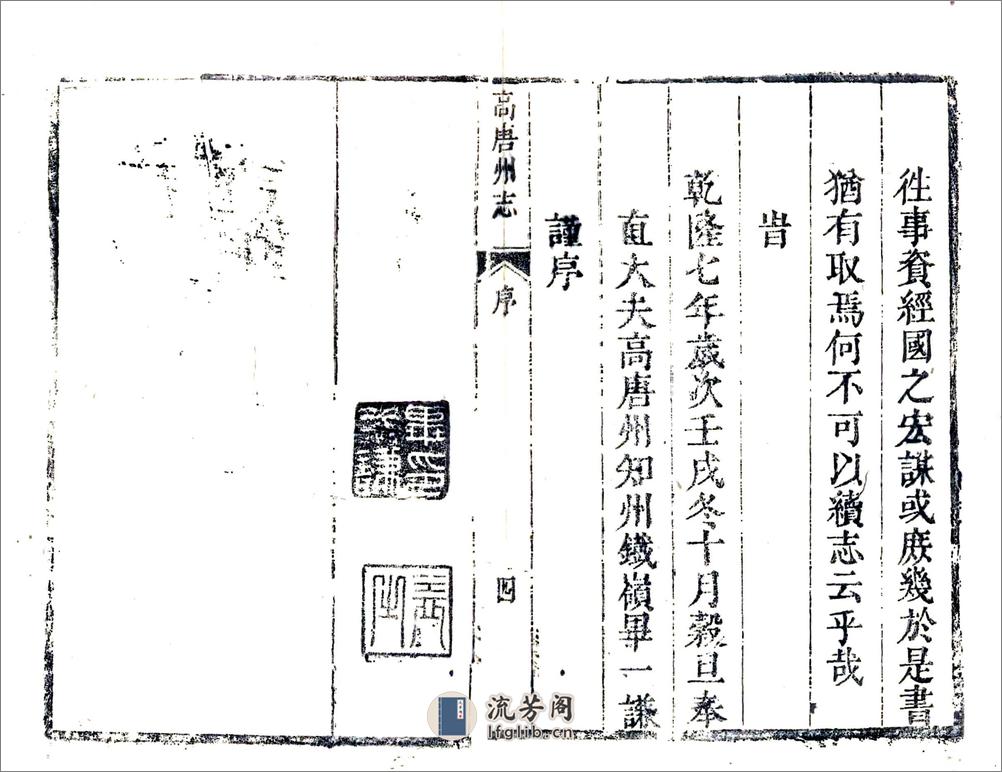 徃事資經國之宏謀或庻幾於是書
猶有取焉何不可以續志云乎哉
旹
乾隆七年歲次壬戌冬十月穀旦奉
直大夫高唐州知州鐵嶺畢一謙
謹序
高唐州志
序
四
畢一謙印
流芳阁
lfglib.cn